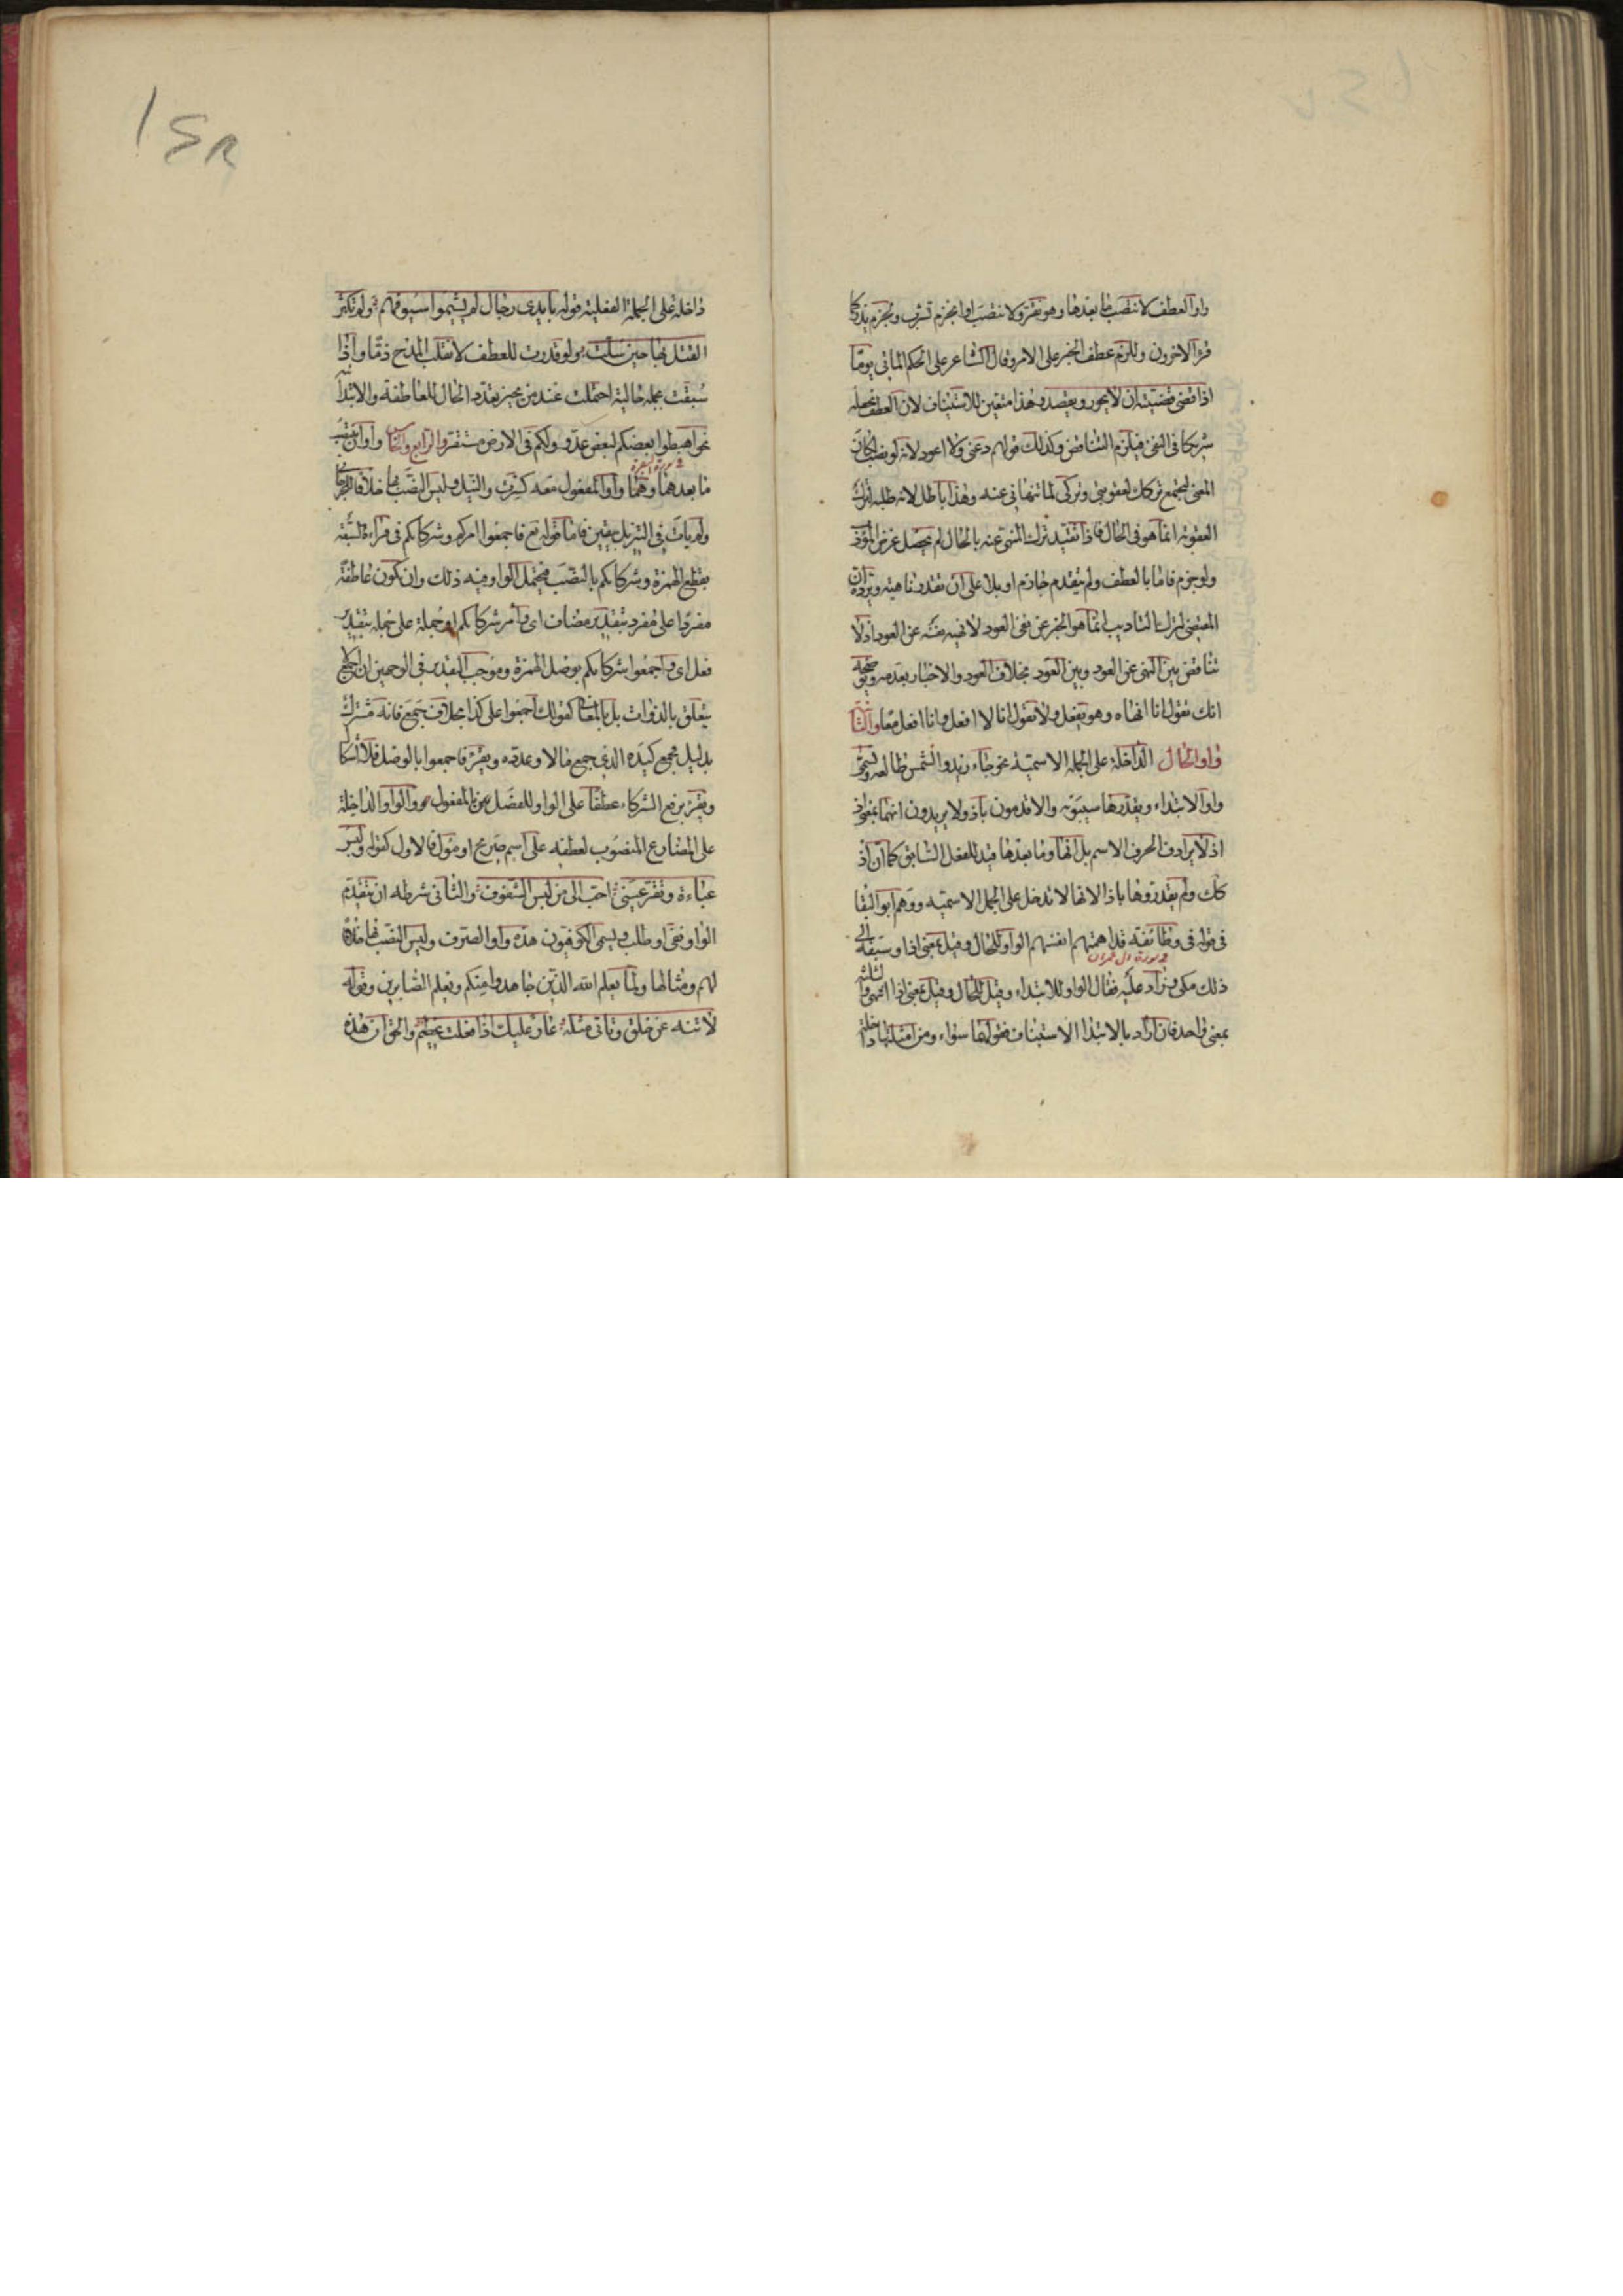 واو العطف لانتصب ما بعدها وهو نقر ولا نتصب او انجزم تشرب ويجزم يذر كما
قرأ الآخرون وللزم عطف الخبر على الامر وقال الشاعر على الحكم المأتي يوما
اذا قضى قضيته ان لا يجور ويقصد وهذا متعين للاستيناف لان العطف يجعله
شريكا فى النفى فيلزم التناقض وكذلك قولهم دعنى ولا اعود لانه لو نصب لكان
المعنى ليجتمع تركك لعقوبتى وتركى لما تنهانى عنه وهذا باطل لان طلبه لترك
العقوبة انما هو فى الحال فاذا تقيد ترك المنهى عنه بالحال لم يحصل غرض المؤدب
ولو جزم فاما بالعطف ولم يتقدم جازم او بلا على ان تقدر ناهية ويرده ان
المقتضى لترك التاديب انما هو الخبر عن نفى العود لا نهيه نفسه عن العود اذ لا
تناقض بين النهى عن العود وبين العود بخلاف العود والاخبار بعدمه ويوضحه
انك تقول انا انهاه وهو يفعل ولا تقول انا لا افعل وانا افعل معا والثالث
واو الحال الداخلة على الجملة الاسمية نحو جاء زيد والشمس طالعة وتسمى
واو الابتداء ويقدرها سيبويه والاقدمون باذ ولا يريدون انها بمعنى اذ
اذ لا يرادف الحرف الاسم بل انها وما بعدها قيد للفعل السابق كما ان اذ
كذلك ولم يقدروها باذا لانها لا تدخل على الجمل الاسمية ووهم ابو البقا
فى قوله فى وطائفة قد اهمتهم انفسهم الواو للحال وقيل بمعنى اذا وسبقه الى
سورة ال عمران
ذلك مكى وزاد عليه فقال الواو للابتداء وقيل للحال وقيل بمعنى اذا انتهى والثلثة
بمعنى واحد فان اراد بالابتدا الاستيناف فقولهما سواء ومن امثلتها داخلة
داخلة على الجملة الفعلية قوله بايدى رجال لم يشيموا سيوفهم ولم تكثر
القتلى بها حين سلت ولو قدرت للعطف لانقلب المدح ذما واذا
سبقت بجملة حالية احتملت عند من يجيز تعدد الحال العاطفة والابتدائية
نحو اهبطوا بعضكم لبعض عدو ولكم فى الارض مستقر والرابع والخامس واوان ينتصب
سورة البقرة
ما بعدهما وهما واو المفعول معه كسرت والنيل وليس النصب بها خلافا للجرجانى
ولم يأت فى التنزيل بيقين فاما قوله تع فاجمعوا امركم وشركاءكم فى قراءة السبعة
بقطع الهمزة وشركاءكم بالنصب فيحتمل الواو فيه ذلك وان تكون عاطفة
مفردا على مفرد بتقدير مضاف اى وامر شركائكم او جملة على جملة بتقدير
فعل اى واجمعوا شركاءكم بوصل الهمزة وموجب التقدير فى الوجهين ان اجمع لا
يتعلق بالذوات بل بالمعانى كقولك اجمعوا على كذا بخلاف جمع فانه مشترك
بدليل فجمع كيده الذى جمع مالا وعدده ويقرأ فاجمعوا بالوصل فلا اشكال
ويقرأ برفع الشركاء عطفا على الواو للفصل بالمفعول والواو الداخلة
على المضارع المنصوب لعطفه على اسم صريح او مؤول فالاول كقوله ولبس
عباءة وتقر عينى احب الى من لبس الشفوف والثانى شرطه ان يتقدم
الواو نفى او طلب ويسمى الكوفيون هذه واو الصرف وليس النصب بها خلافا
لهم ومثالها ولما يعلم الله الذين جاهدوا منكم ويعلم الصابرين وقوله
لا تنه عن خلق وتاتى مثله عار عليك اذا فعلت عظيم والحق ان هذه